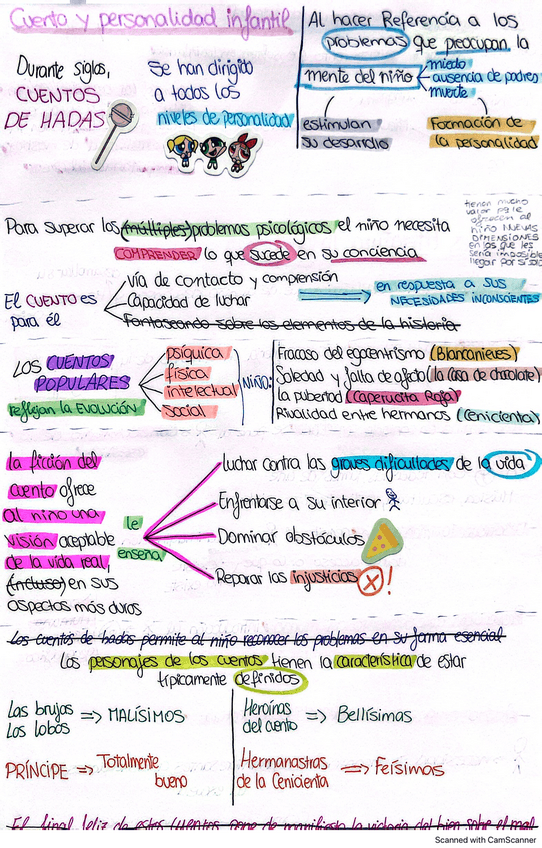 Cuento y personalidad infantil
Durante siglos,
CUENTOS
DE HADAS
se han dirigido
a todos los
niveles de personalidad
Al hacer Referencia a los
problemas que preocupan la
mente del niño
miedo
ausencia de padres
muerte
estimulan
su desarrollo
Formación de
la personalidad
Para superar los (múltiples) problemas psicológicos el niño necesita
COMPRENDER lo que sucede en su conciencia
tienen mucho
valor pq le
ofrecen al
niño NUEVAS
DIMENSIONES
en las que les
sería imposible
llegar por sí solo
El CUENTO es
para él
vía de contacto y comprensión
Capacidad de luchar
Fantaseando sobre los elementos de la historia
en respuesta a sus
NECESIDADES INCONSCIENTES
LOS CUENTOS
POPULARES
reflejan la EVOLUCIÓN
psíquica
física
intelectual
social
NIÑO:
Fracaso del egocentrismo (Blancanieves)
Soledad y falta de afecto (la casa de chocolate)
la pubertad (Caperucita Roja)
Rivalidad entre hermanos (Cenicienta)
la ficción del
cuento ofrece
al niño una
visión aceptable
de la vida real,
(incluso) en sus
aspectos más duros
le
enseña
luchar contra las graves dificultades de la vida
Enfrentarse a su interior
Dominar obstáculos
Reparar las injusticias !
Los cuentos de hadas permite al niño reconocer los problemas en su forma esencial
Los personajes de los cuentos tienen la característica de estar
típicamente definidos
Las brujas
Los lobos
=> MALÍSIMOS
Heroínas
del cuento
=> Bellísimas
PRÍNCIPE => Totalmente
bueno
Hermanastras
de la Cenicienta
=> Feísimas
El final feliz de estos cuentos pone de manifiesto la victoria del bien sobre el mal
Scanned with CamScanner